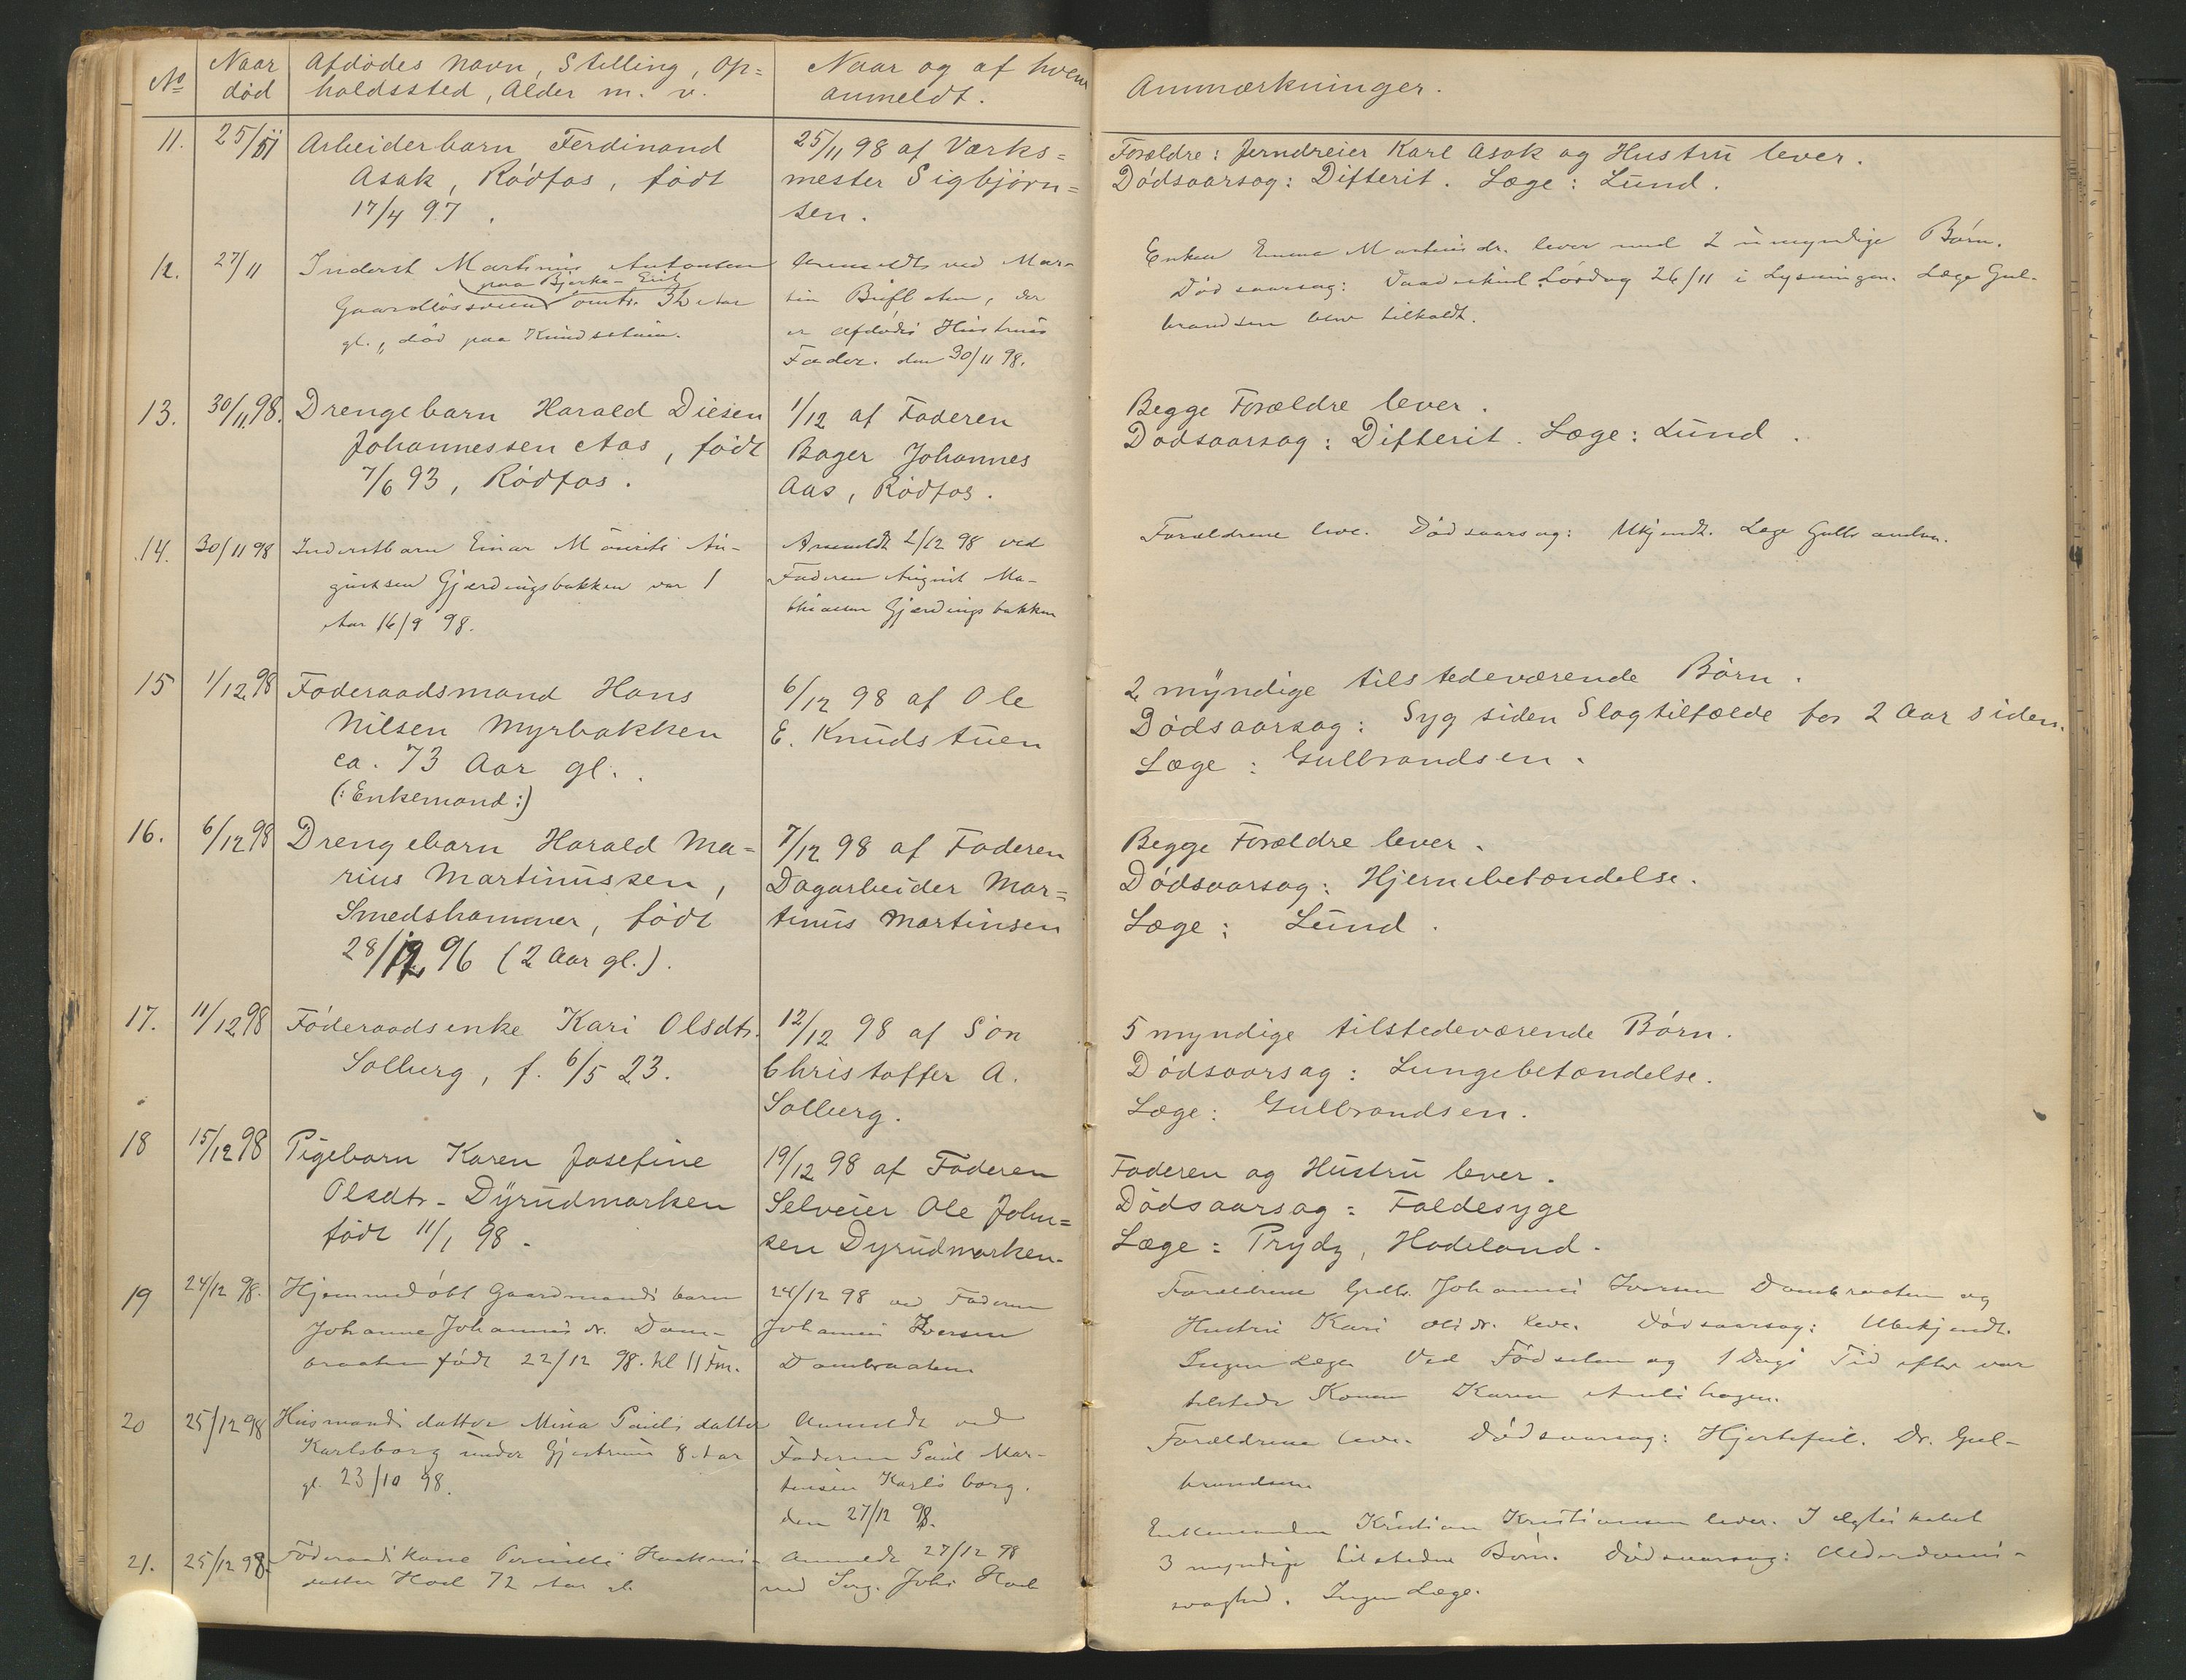 No
Naar
død
Afdødes Navn, Stilling, Op=
holdssted, Alder m. v.
Naar og af hvem
anmeldt.
Anmærkninger.
11.
25/11
Arbeiderbarn Ferdinand
Asak, Rødfos, født
17/4 97.
25/11 98 af Værks=
mester Sigbjørn=
sen.
Forældre: Jerndreier Karl Asak og Hustru lever.
Dødsaarsag: Difterit. Læge: Lund.
12.
27/11
Inderst Martinus Antonsen
paa Bjerke-Eie
Gaardløs omtr. 32 Aar
gl., død paa Knudsstuen.
Anmeldt ved Mar-
tin, der
er Afdødes Hustrus
Fader. den 30/11 98.
Enken Emma Martinsdr. lever med 2 umyndige Børn.
Dødsaarsag: Vaadeskud Lørdag 26/11 i Lysningen. Læge Gul-
brandsen blev tilkaldt.
13.
30/11 98.
Drengebarn Harald Diesen
Johannessen Aas, født
7/6 93, Rødfos.
1/12 af Faderen
Bager Johannes
Aas, Rødfos.
Begge Forældre lever.
Dødsaarsag: Difterit. Læge: Lund.
14.
30/11 98
Inderstbarn Einar Mauritz Au-
gustsen Gjerdingsbakken var 1
Aar 16/9 98.
Anmeldt 2/12 98 ved
Faderen August Ma-
thiasen Gjerdingsbakken
Forældrene leve. Dødsaarsag: Ukjendt. Læge Gulbrandsen.
15
1/12 98
Føderaadsmand Hans
Nilsen Myrbakken
ca. 73 Aar gl..
(:Enkemand:)
6/12 98 af Ole
E. Knudstuen
2 myndige tilstedeværende Børn.
Dødsaarsag: Syg siden Slagtilfælde for 2 Aar siden.
Læge: Gulbrandsen.
16.
6/12 98
Drengebarn Harald Ma=
rius Martinussen,
Smedshammer, født
28/12 96 (2 Aar gl.).
7/12 98 af Faderen
Dagarbeider Mar=
tinus Martinsen
Begge Forældre lever.
Dødsaarsag: Hjernebetændelse.
Læge: Lund.
17.
11/12 98
Føderaadsenke Kari Olsdtr.
Solberg, f. 6/5 23.
12/12 98 af Søn
Christoffer A.
Solberg.
5 myndige tilstedeværende Børn.
Dødsaarsag: Lungebetændelse.
Læge: Gulbrandsen.
18
15/12 98
Pigebarn Karen Josefine
Olsdtr. Dyrudmarken
født 11/1 98.
19/12 98 af Faderen
Selveier Ole John=
sen Dyrudmarken.
Faderen og Hustru lever.
Dødsaarsag: Faldesyge
Læge: Prydz, Hadeland.
19
24/12 98.
Hjemmedøbt Gaardmands barn
Johanne Johannisdr. Dom-
braaten født 22/12 98. kl 11 Fm.
24/12 98 ved Faderen
Johannes Iversen
Dombraaten
Forældrene Grdbr. Johannes Iversen Dombraaten og
Hustru Kari Olsdr. leve. Dødsaarsag: Ubekjendt.
Ingen Læge. Ved Fødselen og 1 Dags Tid efter var
tilstede Konen Karen hagen.
20
25/12 98
Husmandsdatter Mina Paulsdatter
Karlsborg under Gjestrum 8 Aar
gl. 23/10 98.
Anmeldt ved
Faderen Paul Mar-
tinsen Karlsborg.
den 27/12 98.
Forældrene leve. Dødsaarsag: Hjertefeil. Dr. Gul-
brandsen
21.
25/12 98.
Føderaadskone Pernille Haakens-
datter Hoel 72 Aar gl.
Anmeldt 27/12 98
ved Hoel
Enkemanden Kristian Kristiansen lever. I Ægteskabet
3 myndige tilstedev. Børn. Dødsaarsag: Alderdoms-
svaghed. Ingen Læge.